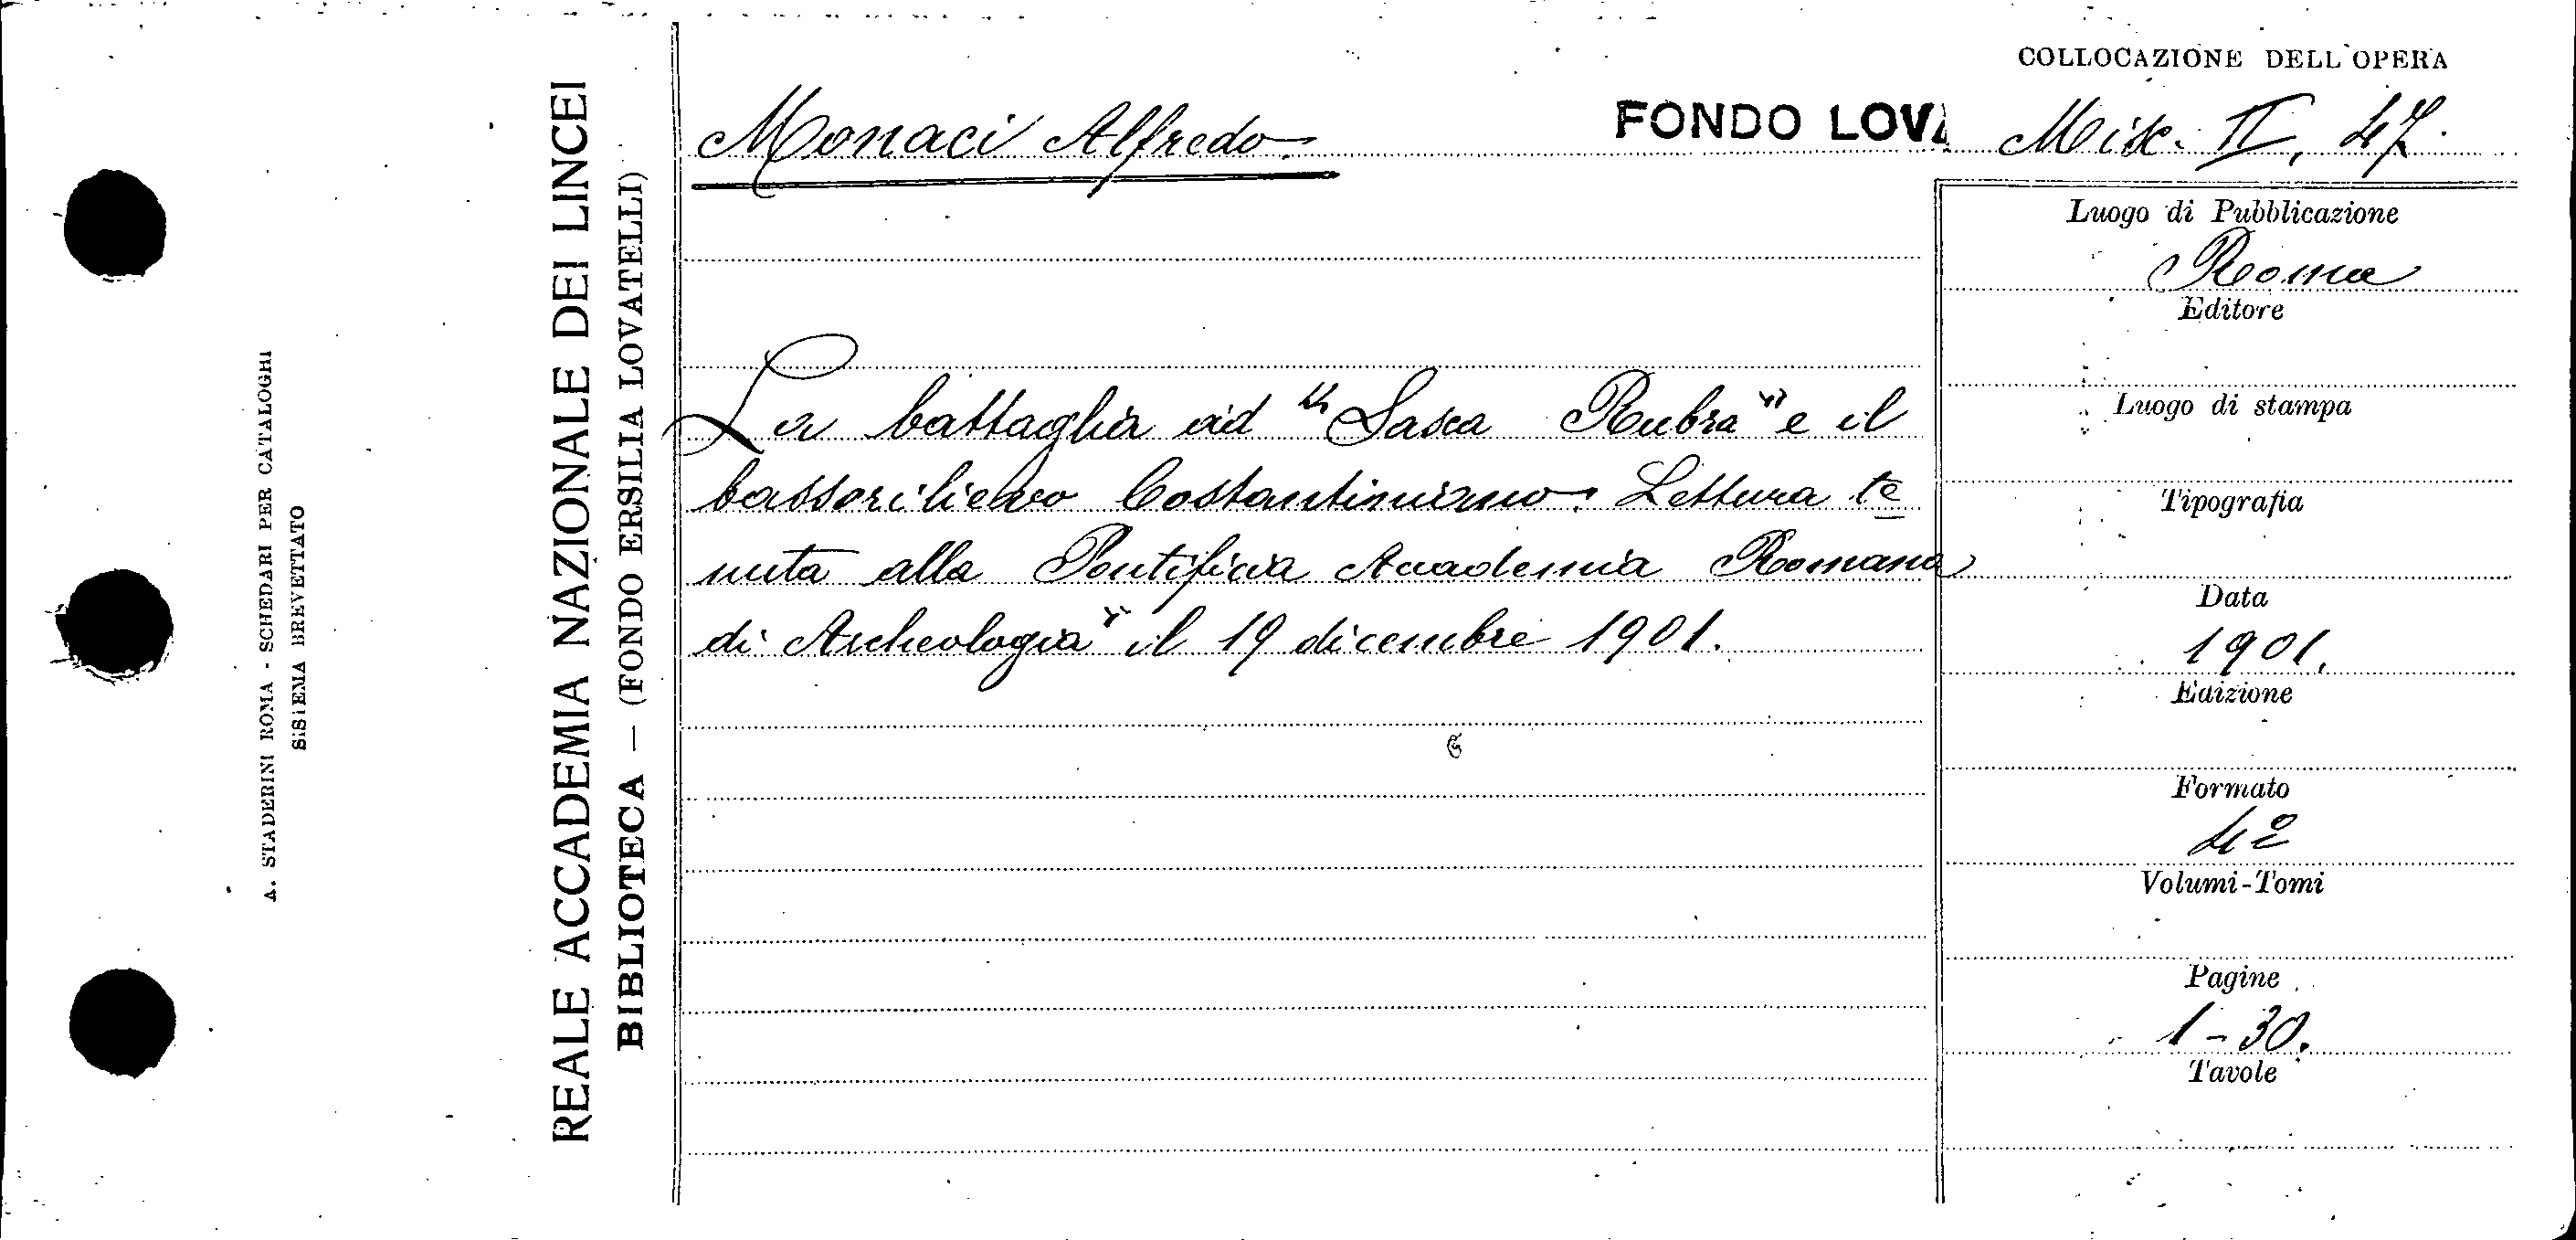 COLLOCAZIONE DELL'OPERA
Monaci Alfredo.
FONDO LOVA
Misc. II, 47.
A. STADERINI ROMA - SCHEDARI PER CATALOGHI
SISTEMA BREVETTATO
REALE ACCADEMIA NAZIONALE DEI LINCEI
BIBLIOTECA — (FONDO ERSILIA LOVATELLI)
La battaglia ad "Saxa Rubra" e il
bassorilievo Costantiniano. Lettura te
nuta alla Pontificia Accademia Romana
di Archeologia" il 19 dicembre 1901.
Luogo di Pubblicazione
Roma
Editore
Luogo di stampa
Tipografia
Data
1901.
Edizione
Formato
4º
Volumi-Tomi
Pagine
1-30.
Tavole